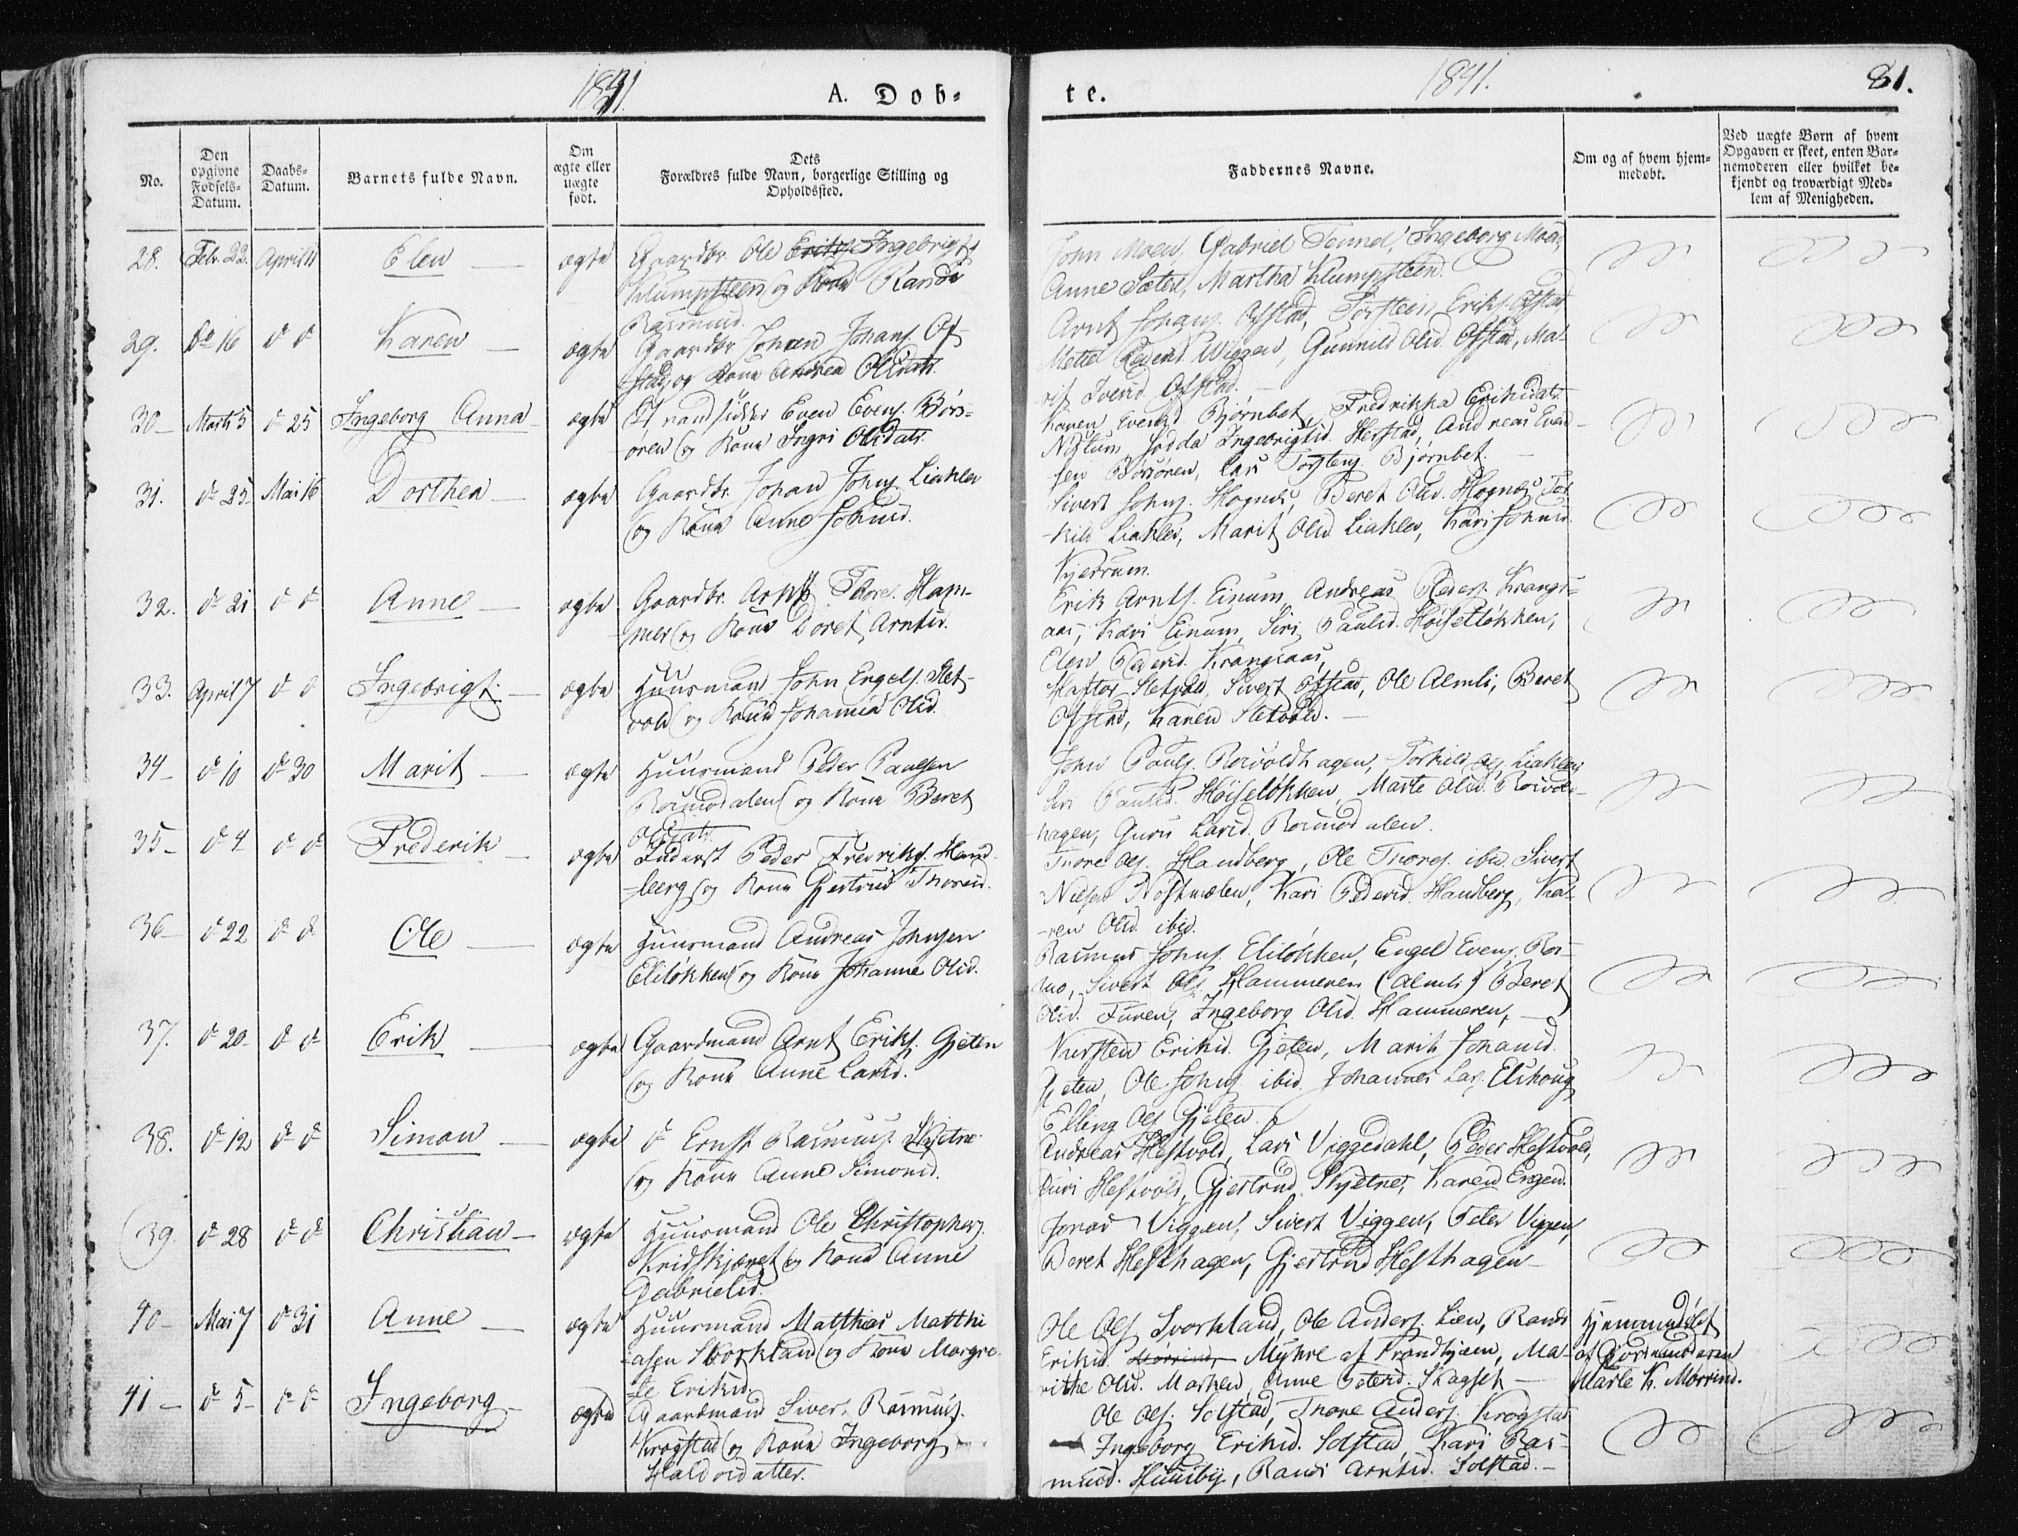 1841. A. Døb-
te. 1841. 81.
No.
Den opgivne Fødsels-Datum.
Daabs-Datum.
Barnets fulde Navn.
Om ægte eller uægte født.
Dets Forældres fulde Navn, borgerlige Stilling og Opholdssted.
Faddernes Navne.
Om og af hvem hjem-
medøbt.
Ved uægte Børn af hvem
Opgaven er skeet, enten Bar-
nemoderen eller hvilket be-
kjendt og troværdigt Med-
lem af Menigheden.
28. Febr. 22. April 11 Elen ægte Gaardbr. Ole Ingebrigts.
Klumpsteen og Kone Randi
Rasmusd.
John Moen, Gabriel Ingeborg Moen,
Anne Sæter, Martha Klumpsteen.
29. Do 16 d d Karen ægte Gaardbr. Johan Johans. Of-
stad og Kone Andrea Olsdatr.
Arnt Johans. Ofstad, Torsteen Eriks. Ofstad
Mette Pedersd. Wiggen, Gunnild Olsd. Ofstad, Ma-
rit Iversd. Ofstad.
30 Marts 5 d 25 Ingeborg Anna ægte Strandsidder Even Evens. Børs-
øren og Kone Ingri Olsdatr.
Karen Evensd. Bjørnbet, Fredrikka Eriksdatr.
Ingebrigtsd. Herstad, Andreas Even-
sen Børsøren, Lars Torstens. Bjørnbet.
31. d 25. Mai 16 Dorthea ægte Gaardbr. Johan Johns. Liaklev
og Kone Anne Johnsd.
Sivert Johns. Hognæs, Beret Olsd. Hognæs, Tor-
kild Liaklev, Marit Olsd. Liaklev, Kari Johnsd.
Kjerrum.
32. d 21 d d Anne ægte Gaardbr. Arnt Thores. Ham-
mer og Kone Doret Arntsd.
Erik Arnts. Einum, Andreas Peders. Krangs-
aas, Kari Einum, Siri Paulsd. Høiseløkken,
Elen Pedersd. Krangsaas,
33. April 7 d d Ingebrigt ægte Huusmand John Engels. Slet-
vold og Kone Johanna Olsd.
Haftor Sletvold, Sivert Ofstad, Ole Almli, Beret
Ofstad, Karen Sletvold.
34 d 10 d 30 Marit ægte Huusmand Peder Paulsen
Rosmodalen og Kone Beret
Olsdatr.
John Pauls. Rosvoldhagen, Torkild Ols. Liaklev
Siri Paulsd. Høiseløkken, Marte Olsd. Rosvold-
hagen, Guru Larsd. Rosmodalen.
35 d 4 d d Frederik ægte Inderst Peder Fredriks. Hand-
berg og Kone Gjertrud Thoresd.
Thore Ols. Handberg, Ole Thores. ibid. Sivert
Nielsen Kari Pedersd. Handberg, Ka-
ren Olsd. ibid.
36 d 22 d d Ole ægte Huusmand Andreas Johnsen
Eliløkken og Kone Johanne Olsd.
Rasmus Johns. Eliløkken, Engel Evens. Ros-
mo, Sivert Ols. Hammeren (Almli) Beret
Olsd. Furen, Ingeborg Olsd. Hammeren,
37. d 20 d d Erik ægte Gaardmand Arnt Eriks. Gjeten
og Kone Anne Larsd.
Kirsten Eriksd. Gjeten, Marit Johansd.
Gjeten, Ole Johns. ibid. Johannes Lars. Elshoug
Elling Ols. Gjeten.
38. d 12 d d Simon ægte d Ernst Rasmuss. Skjetne
og Kone Anne Simonsd.
Andreas Hestvold, Lars Viggedahl, Peder Hestvold,
Guri Hestvold, Gjertrud Skjetne, Karen Engen.
39. d 28 d d Christian ægte Huusmand Ole Christophers.
Kridskjæret og Kone Anne
Gabrielsd.
Jonas Viggen, Sivert Viggen, Peter Viggen,
Beret Hesthagen, Gjertrud Hesthagen
40 Mai 7 d 31 Anne ægte Huusmand Matthias Matthi-
asen Skorkland og Kone Margre-
te Eriksd.
Ole Ols. Svorkland, Ole Anders. Lien, Randi
Eriksd. Myhre af Trondhjem, Ma-
rithe Olsd. Moshen, Anne Petersd. Skagset
Hjemmedøbt
af Gormoderen
Marte K. Morrind.
41 d 5 d d Ingeborg ægte Gaardmand Sivert Rasmuss.
Krogstad og Kone Ingeborg
Haldorsdatter.
Ole Ols. Solstad, Thore Anders. Krogstad
Ingeborg Eriksd. Solstad, Kari Ras-
musd. Huusby, Randi Arntsd. Solstad.